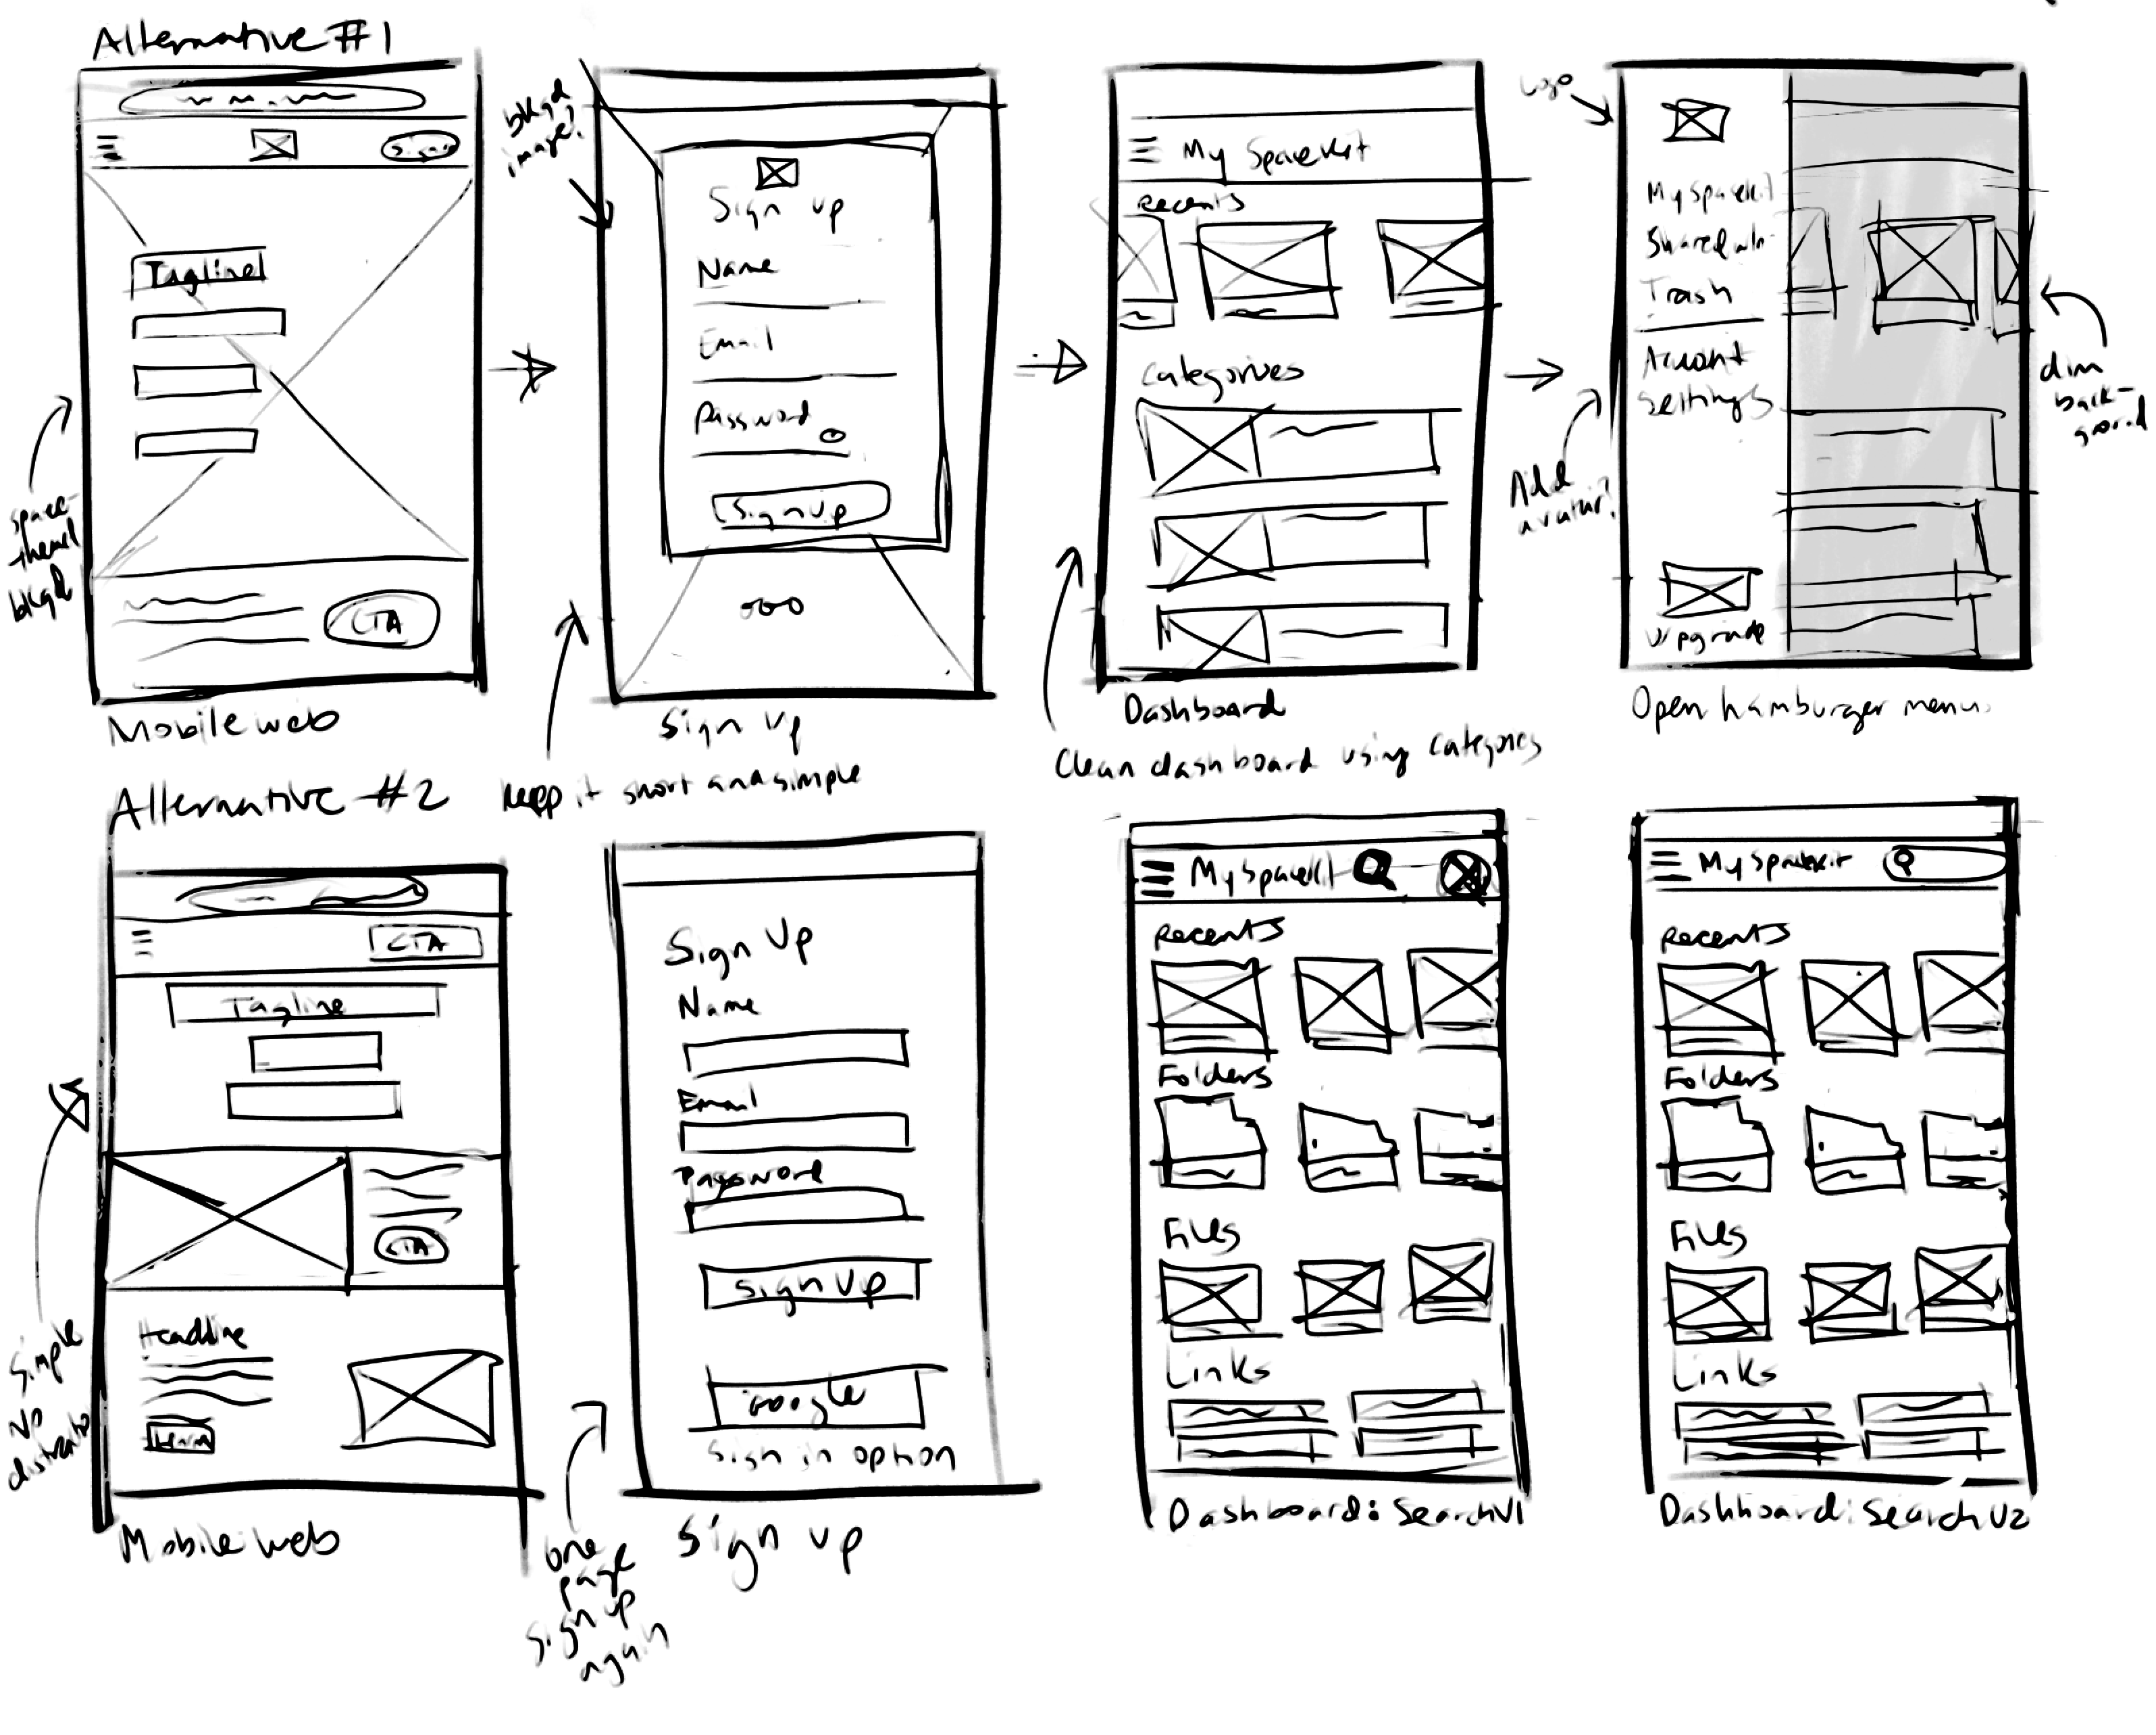 Alternative #1
Sign
Tagline
CTA
space
themed
bkgd
Mobile web
bkgd
image?
Sign up
Name
Email
Password
Sign up
Sign up
keep it short and simple
My Spacekit
Recents
Categories
Dashboard
Clean dashboard using categories
Logo
My Spacekit
Trash
Account
settings
Upgrade
Add
avatar?
dim
back-
ground
Open hamburger menu
Alternative #2
CTA
Tagline
CTA
Headline
Simple
No
Mobile web
Sign Up
Name
Email
Password
Sign Up
Google
Sign in option
Sign up
one
page
sign up
again
My Spacekit
Recents
Folders
Files
Links
Dashboard: Search V1
My Spacekit
Recents
Folders
Files
Links
Dashboard: Search V2